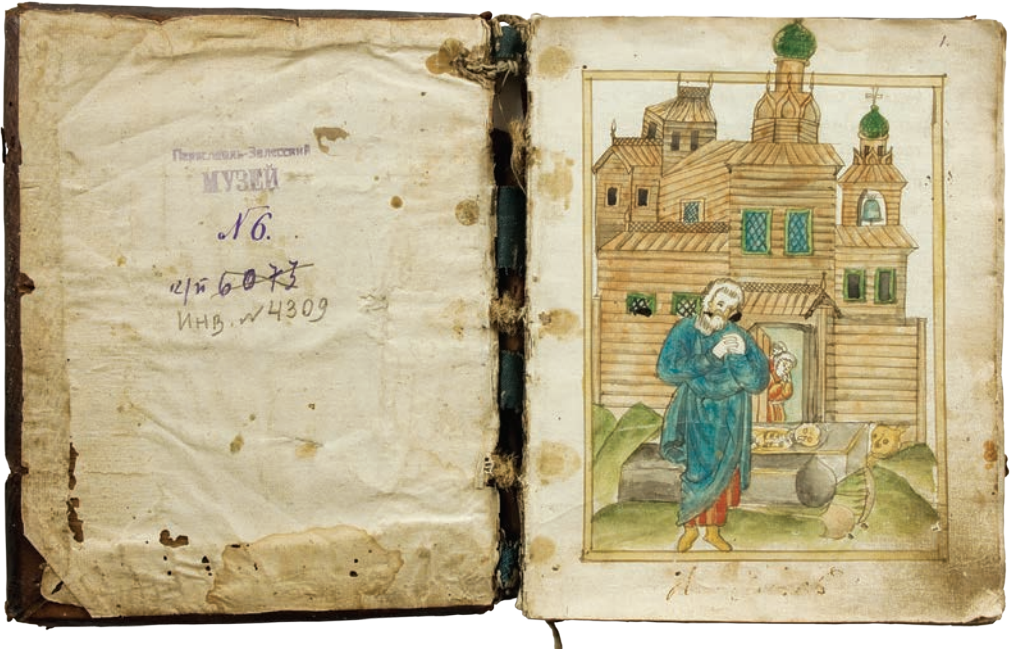 Переславль-Залесский
МУЗЕЙ
№ 6.
и/п 6073
Инв. № 4309
1.